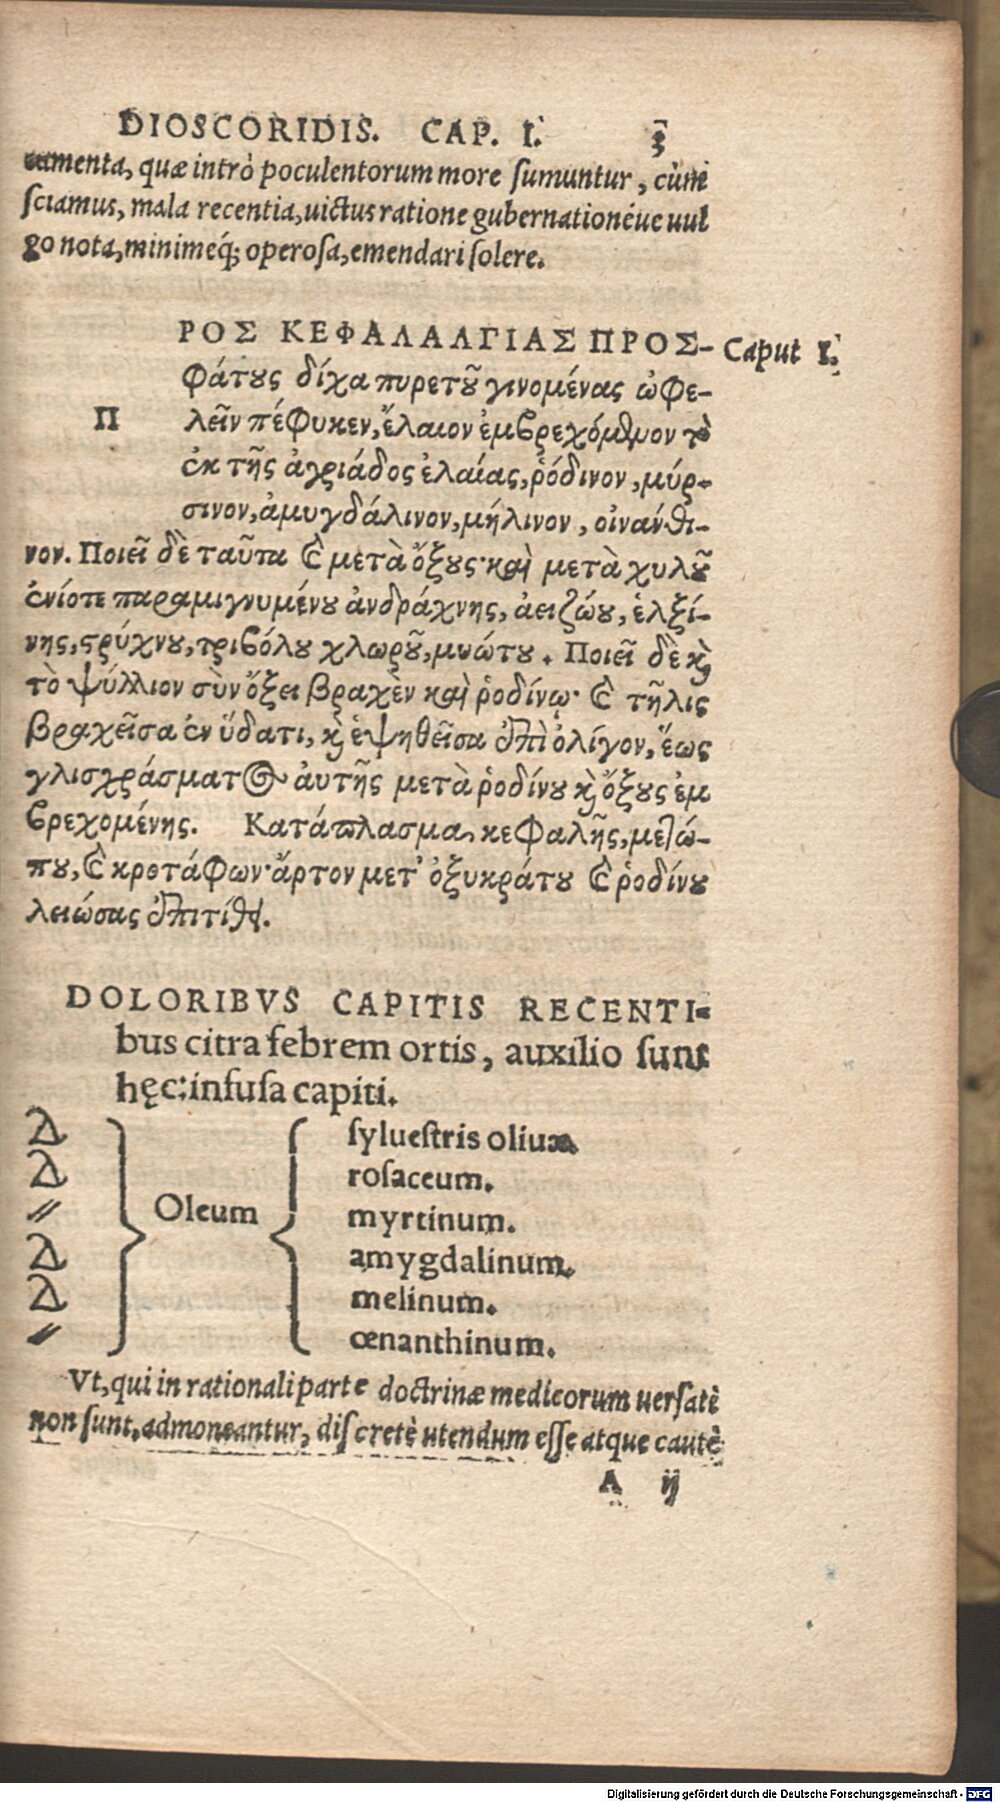 DIOSCORIDIS. CAP. I. 3
camenta, quæ intrò poculentorum more ſumuntur, cùm
ſciamus, mala recentia, uictus ratione gubernationéue uul
go nota, minimeq́; operoſa, emendari ſolere.
ΡΟΣ ΚΕΦΑΛΑΛΓΙΑΣ ΠΡΟΣ- Caput I.
φάτους δίχα πυρετοῦ γινομένας ὠφε-
Π λεῖν πέφυκεν, ἔλαιον ἐμβρεχόμενον τὸ
ἐκ τῆς ἀγριάδος ἐλαίας, ῥόδινον, μύρ-
σινον, ἀμυγδάλινον, μήλινον, οἰνάνθι-
νον. Ποιεῖ δὲ ταῦτα καὶ μετὰ ὄξους· καὶ μετὰ χυλοῦ
ἐνίοτε παραμιγνυμένου ἀνδράχνης, ἀειζώου, ἑλξί-
νης, στρύχνου, τριβόλου χλωροῦ, μινώτου. Ποιεῖ δὲ καὶ
τὸ ψύλλιον σὺν ὄξει βραχὲν καὶ ῥοδίνῳ· καὶ τῆλις
βραχεῖσα ἐν ὕδατι, καὶ ἑψηθεῖσα ἐπὶ ὀλίγον, ἕως
γλισχράσματος αὐτῆς μετὰ ῥοδίνου καὶ ὄξους ἐμ
βρεχομένης. Κατάπλασμα κεφαλῆς, μετώ-
που, καὶ κροτάφων· ἄρτον μετ' ὀξυκράτου καὶ ῥοδίνου
λειώσας ἐπιτίθει.
DOLORIBVS CAPITIS RECENTI-
bus citra febrem ortis, auxilio ſunt
hęc: infuſa capiti.
Oleum
ſylueſtris oliuæ.
roſaceum.
myrtinum.
amygdalinum.
melinum.
œnanthinum.
Vt, qui in rationali parte doctrinæ medicorum uerſatè
non ſunt, admoneantur, diſcretè utendum eſſe atque cautè
A ij
Digitalisierung gefördert durch die Deutsche Forschungsgemeinschaft - DFG